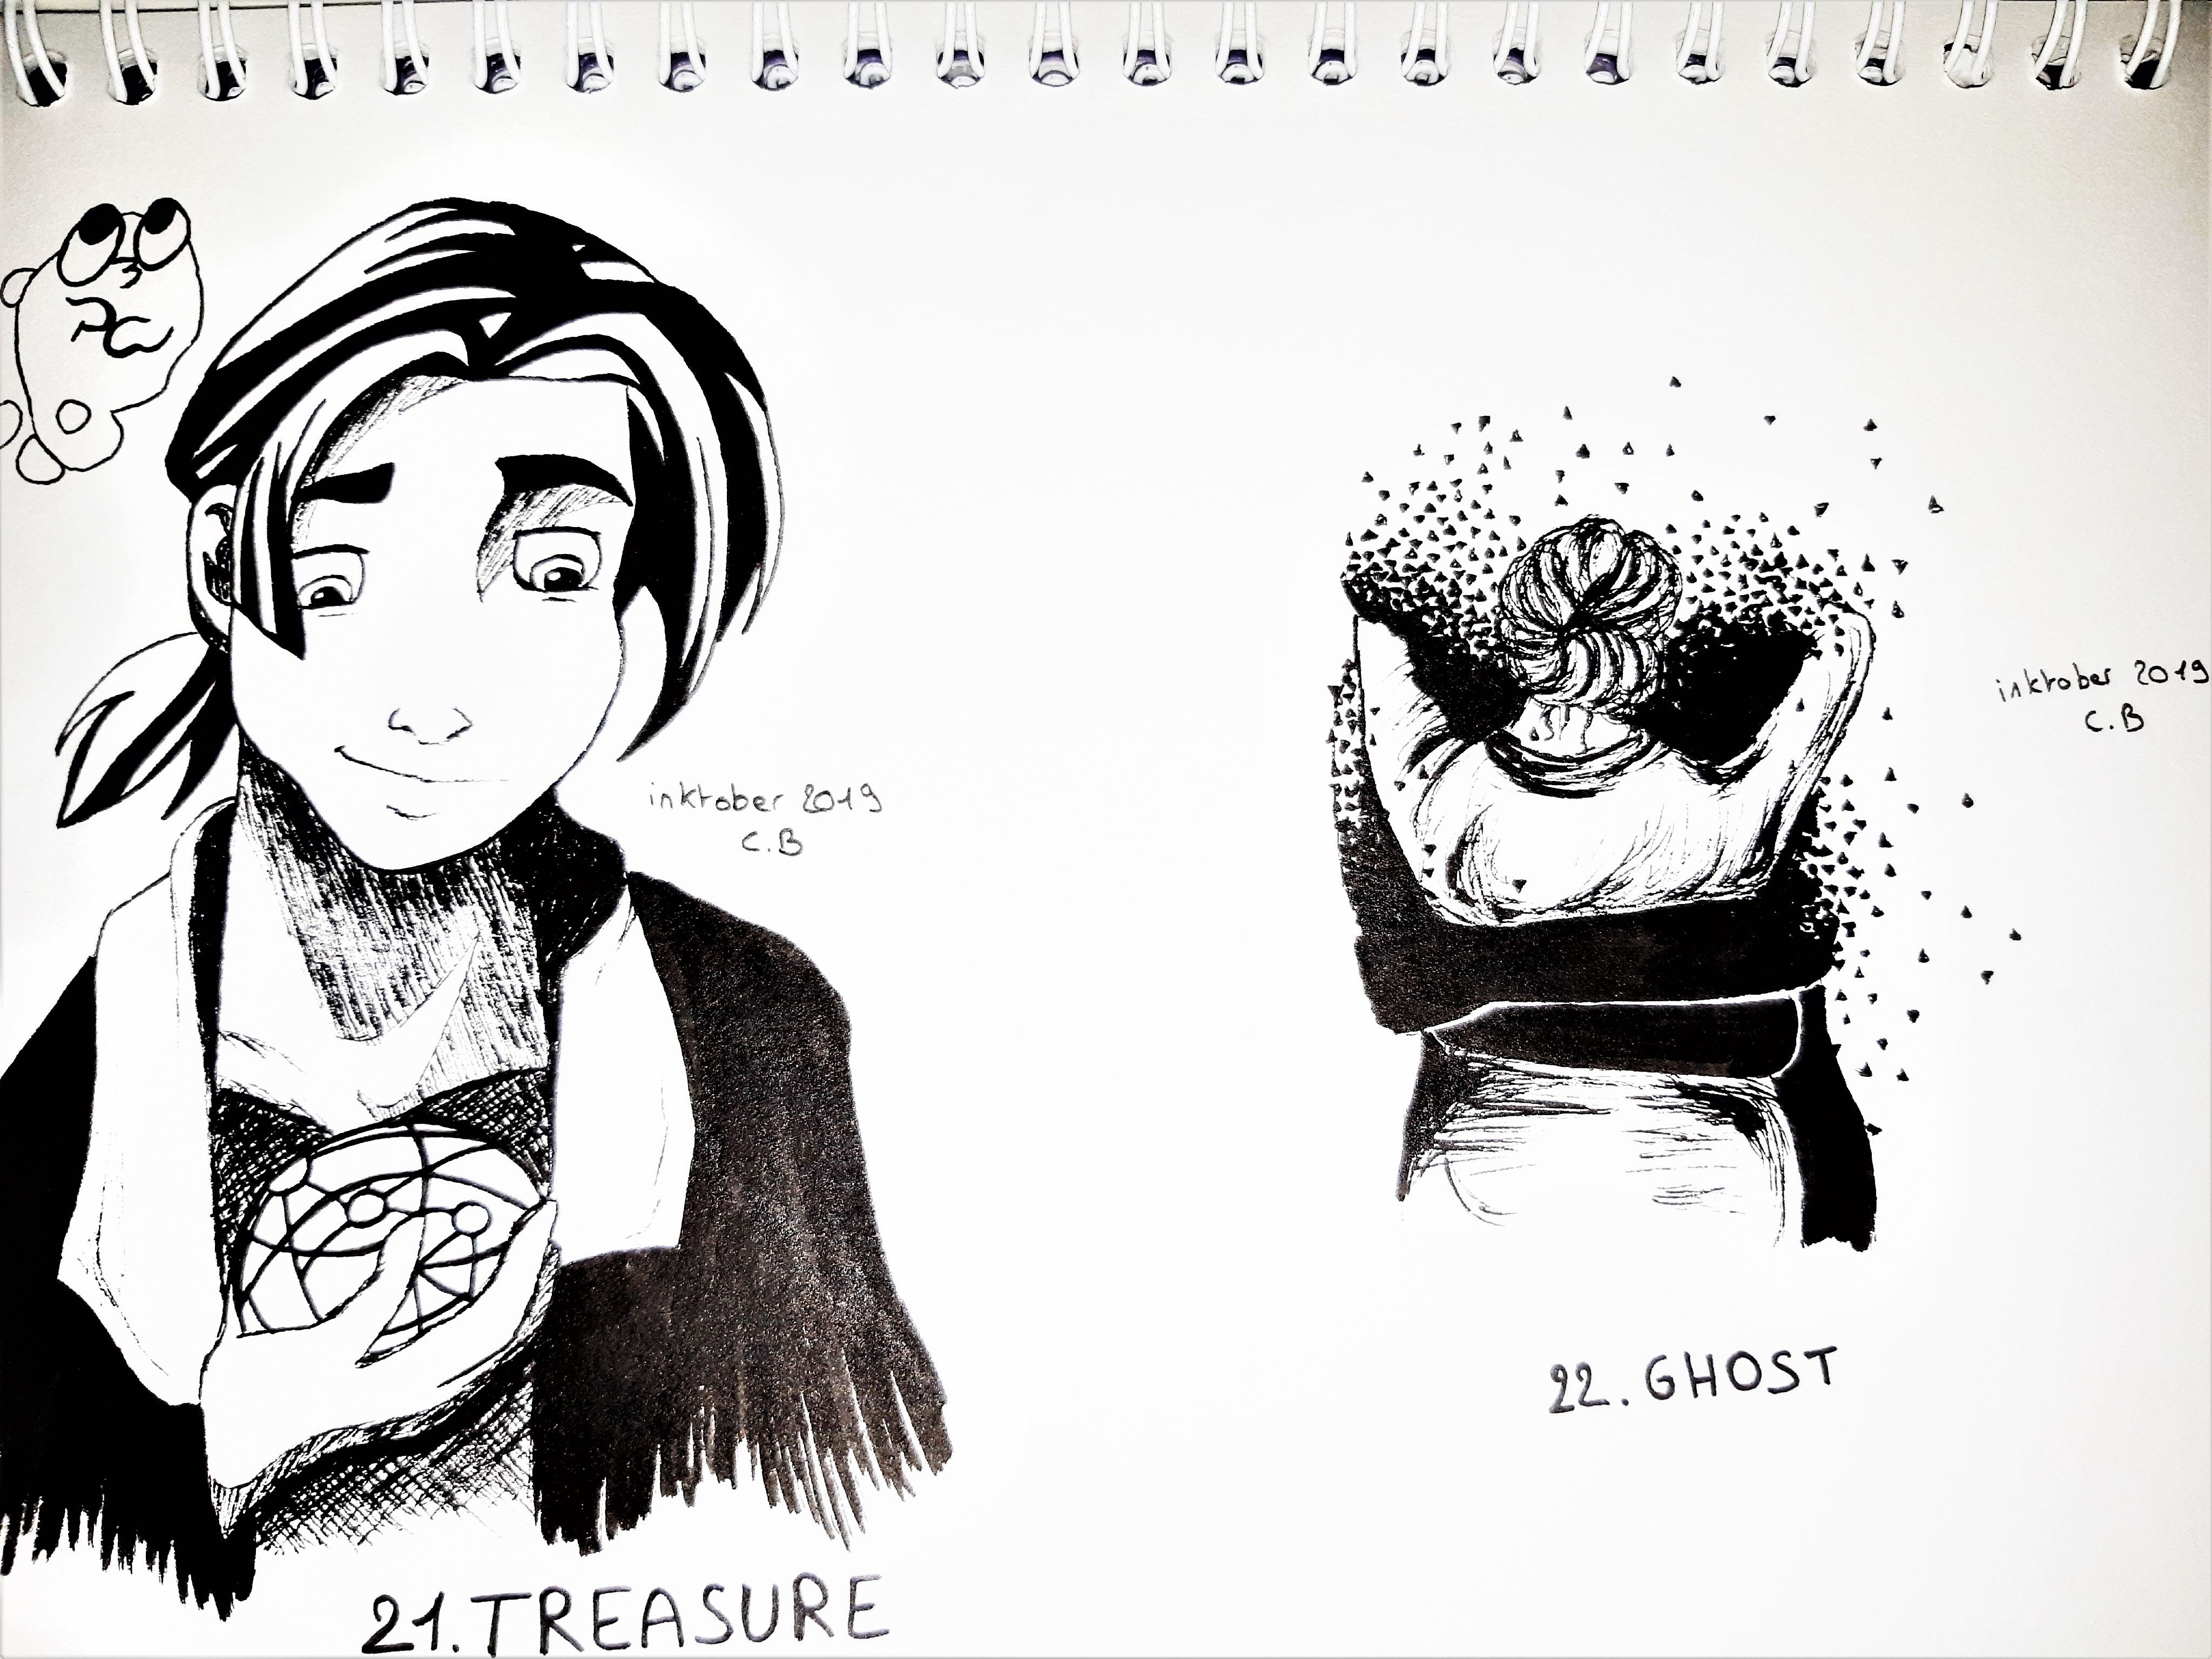 inktober 2019
C.B
21. TREASURE
inktober 2019
C.B
22. GHOST